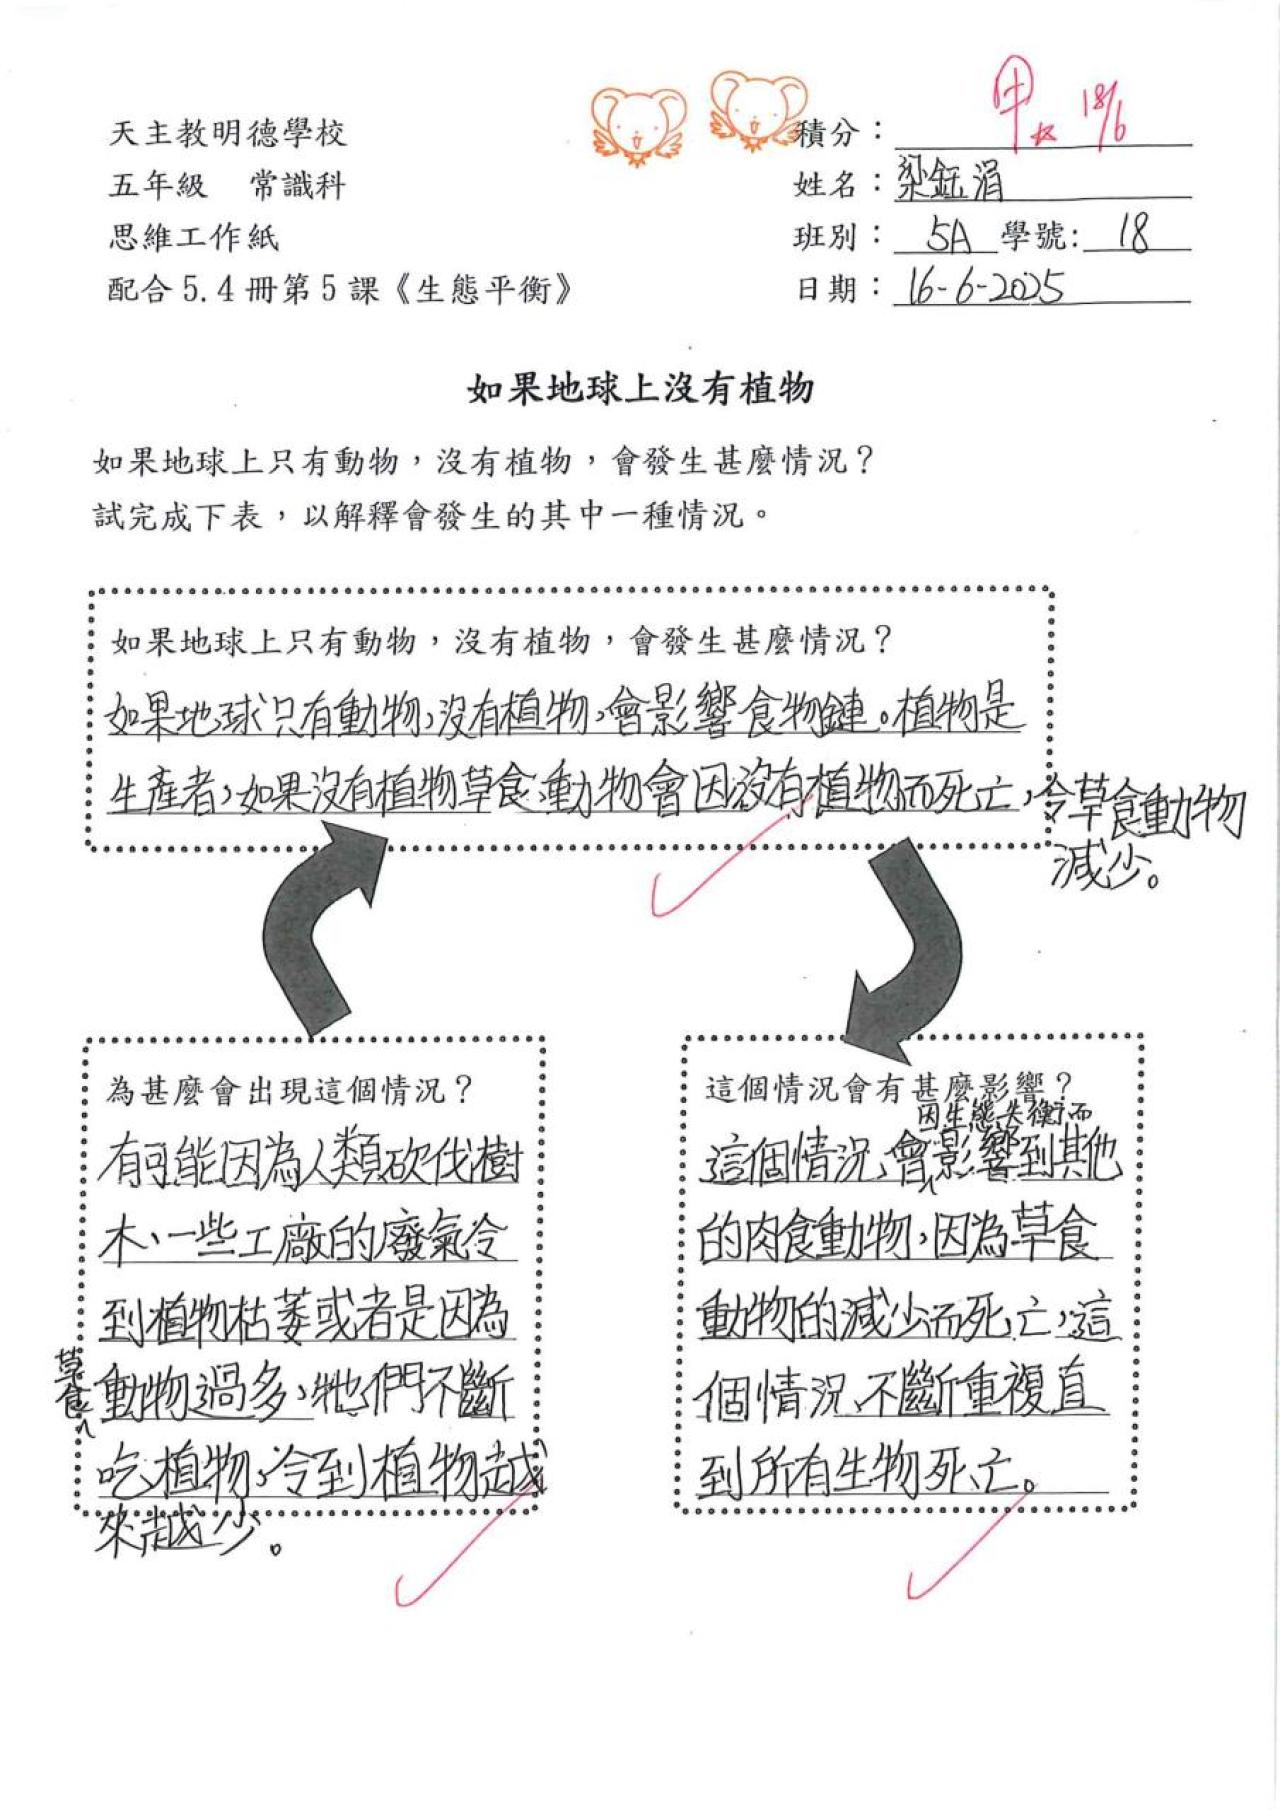 天主教明德學校
五年級 常識科
思維工作紙
配合5.4冊第5課《生態平衡》
積分： 甲 18/6
姓名：梁鈺涓
班別： 5A 學號: 18
日期：16-6-2025
如果地球上沒有植物
如果地球上只有動物，沒有植物，會發生甚麼情況？
試完成下表，以解釋會發生的其中一種情況。
如果地球上只有動物，沒有植物，會發生甚麼情況？
如果地球只有動物，沒有植物，會影響食物鏈。植物是
生產者，如果沒有植物草食動物會因沒有植物而死亡，令草食動物
減少。
為甚麼會出現這個情況？
有可能因為人類砍伐樹
木、一些工廠的廢氣令
到植物枯萎或者是因為
草食動物過多，牠們不斷
吃植物，令到植物越
來越少。
這個情況會有甚麼影響？
因生態失衡而
這個情況，會影響到其他
的肉食動物，因為草食
動物的減少而死亡，這
個情況不斷重複直
到所有生物死亡。